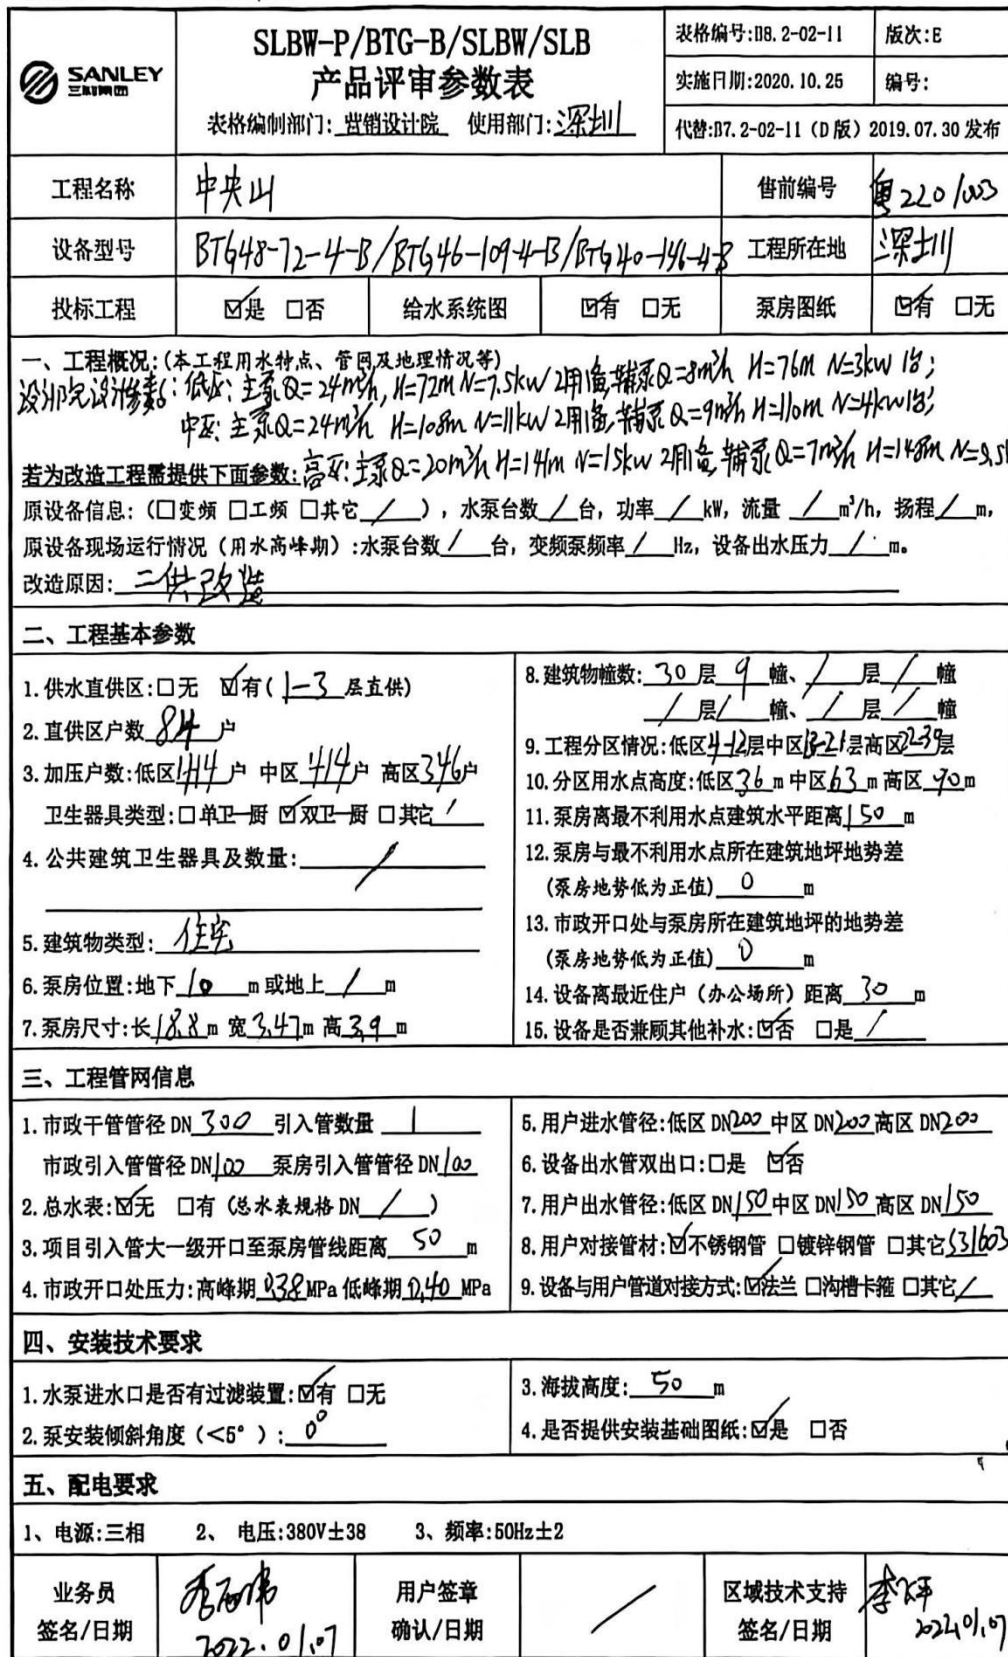 SANLEY
三利集团
SLBW-P/BTG-B/SLBW/SLB
产品评审参数表
表格编制部门:营销设计院 使用部门:深圳
表格编号:B8.2-02-11 版次:E
实施日期:2020.10.25 编号:
代替:B7.2-02-11(D版)2019.07.30发布
工程名称 中央山 售前编号 粤2201003
设备型号 BTG48-72-4-B/BTG46-109-4-B/BTG40-146-4-B 工程所在地 深圳
投标工程 ☑是 □否 给水系统图 ☑有 □无 泵房图纸 ☑有 □无
一、工程概况:(本工程用水特点、管网及地理情况等)
设计院设计参数:低区:主泵Q=24m³/h,H=72m N=7.5kw 2用1备,辅泵Q=8m³/h H=76m N=3kw 1台;
中区:主泵Q=24m³/h H=108m N=11kw 2用1备,辅泵Q=9m³/h H=110m N=4kw 1台;
若为改造工程需提供下面参数:高区:主泵Q=20m³/h H=141m N=15kw 2用1备 辅泵Q=7m³/h H=148m
原设备信息:(□变频 □工频 □其它 / ),水泵台数 / 台,功率 / kW,流量 / m³/h,扬程 / m,
原设备现场运行情况(用水高峰期):水泵台数 / 台,变频泵频率 / Hz,设备出水压力 / m。
改造原因:二供改造
二、工程基本参数
1.供水直供区:□无 ☑有(1-3 层直供)
2.直供区户数 84 户
3.加压户数:低区 户 中区 414 户 高区 346 户
卫生器具类型:□单卫一厨 ☑双卫一厨 □其它 /
4.公共建筑卫生器具及数量: /
5.建筑物类型:住宅
6.泵房位置:地下 10 m或地上 / m
7.泵房尺寸:长 18.8 m 宽 3.47 m 高 3.9 m
8.建筑物幢数: 30 层 9 幢、 / 层 / 幢
/ 层 / 幢、 / 层 / 幢
9.工程分区情况:低区 4-12 层中区 13-21 层高区 层
10.分区用水点高度:低区 36 m 中区 63 m 高区 90 m
11.泵房离最不利用水点建筑水平距离 150 m
12.泵房与最不利用水点所在建筑地坪地势差
(泵房地势低为正值) 0 m
13.市政开口处与泵房所在建筑地坪的地势差
(泵房地势低为正值) 0 m
14.设备离最近住户(办公场所)距离 30 m
15.设备是否兼顾其他补水:☑否 □是 /
三、工程管网信息
1.市政干管管径 DN 300 引入管数量 1
市政引入管管径 DN 100 泵房引入管管径 DN 100
2.总水表:☑无 □有(总水表规格 DN / )
3.项目引入管大一级开口至泵房管线距离 50 m
4.市政开口处压力:高峰期 0.38 MPa 低峰期 0.40 MPa
5.用户进水管径:低区 DN200 中区 DN200 高区 DN200
6.设备出水管双出口:□是 ☑否
7.用户出水管径:低区 DN150 中区 DN150 高区 DN150
8.用户对接管材:☑不锈钢管 □镀锌钢管 □其它
9.设备与用户管道对接方式:☑法兰 □沟槽卡箍 □其它 /
四、安装技术要求
1.水泵进水口是否有过滤装置:☑有 □无
2.泵安装倾斜角度(<5°): 0°
3.海拔高度: 50 m
4.是否提供安装基础图纸:☑是 □否
五、配电要求
1、电源:三相 2、 电压:380V±38 3、频率:50Hz±2
业务员
签名/日期
2022.01.07
用户签章
确认/日期
/
区域技术支持
签名/日期
2022.01.07